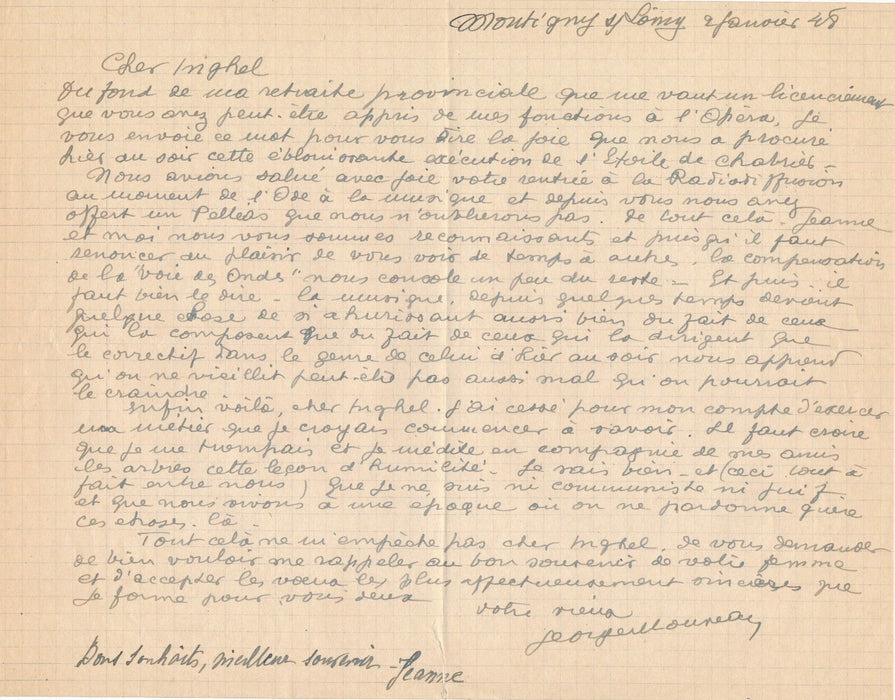 Montigny s/ Loing 2 Janvier 48
Cher Inghel
Du fond de ma retraite provinciale que me vaut un licenciement
que vous avez peut-être appris de mes fonctions à l'Opéra, Je
vous envoie ce mot pour vous dire la joie que nous a procuré
hier au soir cette éblouissante exécution de l'Etoile de Chabrier -
Nous avions salué avec joie votre rentrée à la Radiodiffusion
au moment de l'Ode à la musique et depuis vous nous avez
offert un Pelléas que nous n'oublierons pas. De tout cela - Jeanne
et moi nous vous sommes reconnaissants et puisqu'il faut
renoncer au plaisir de vous voir de temps à autres, la compensation
de la "Voie des Ondes" nous console un peu du reste - Et puis - il
faut bien le dire - la musique, depuis quelques temps devient
quelque chose de si ahurissant aussi bien du fait de ceux
qui la composent que du fait de ceux qui la dirigent que
le correctif dans le genre de celui d'hier au soir nous apprend
qu'on ne vieillit peut-être pas aussi mal qu'on pourrait
le craindre.
Enfin voilà, cher Inghel. J'ai cessé pour mon compte d'exercer
un métier que je croyais commencer à savoir. Il faut croire
que je me trompais et je médite en compagnie de mes amis
les arbres cette leçon d'humilité - Je sais bien - et (ceci tout à
fait entre nous) que je ne suis ni communiste ni juif
et que nous vivons à une époque où on ne pardonne guère
ces choses-là -
Tout celà ne m'empêche pas cher Inghel, de vous demander
de bien vouloir me rappeler au bon souvenir de votre femme
et d'accepter les vœux les plus affectueusement sincères que
Je forme pour vous deux
votre vieux
Georges Mouveau
Bons souhaits, meilleur souvenir - Jeanne